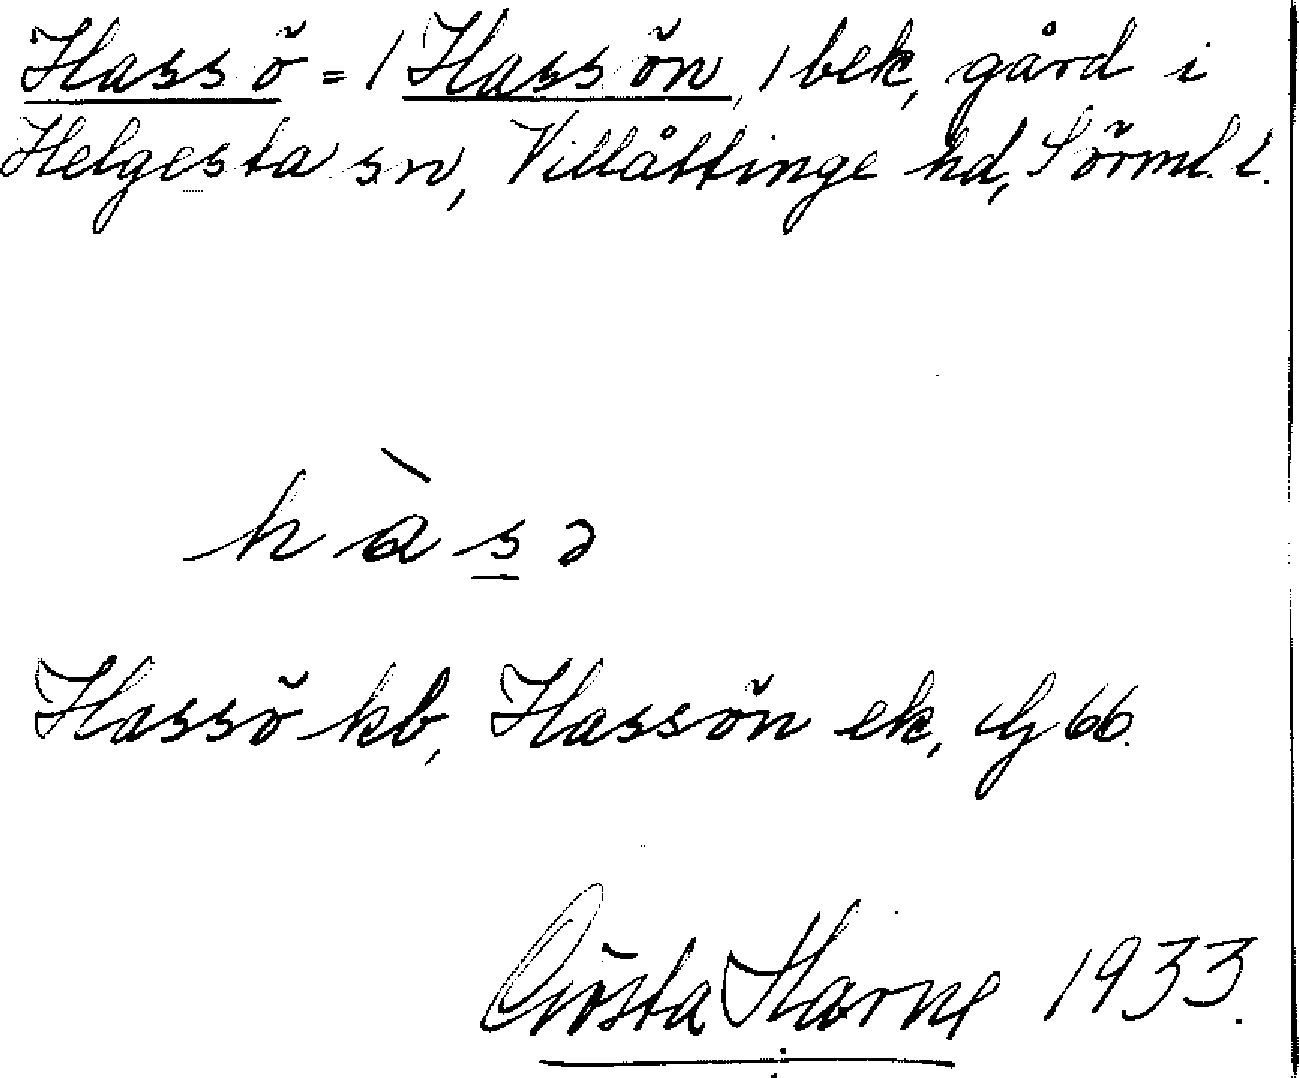 Hassö = / Hassön, / bek, gård i
Helgesta sn, Villåttinge hd, Sörml. l.
hàsə
Hassö kb, Hassön ek, Gg 66.
Gösta Harne 1933.